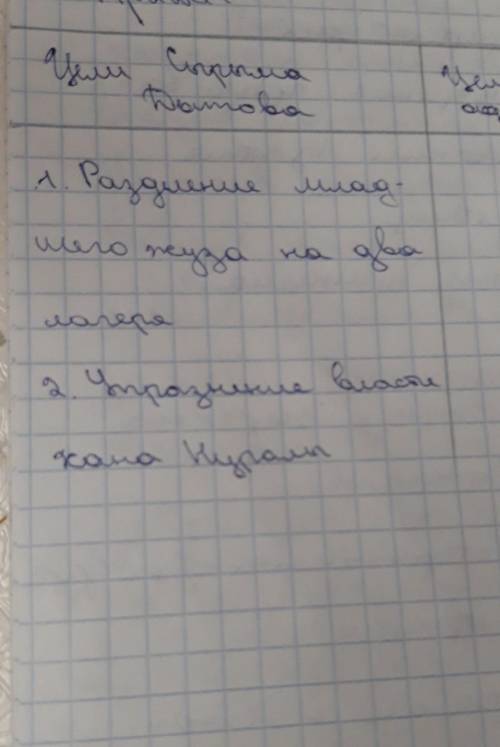 Цели Сырыма
Датова
Цел
1. Раздление млад-
шего жуза на два
лагеря
2. Упразнение власти
хана Нуралы